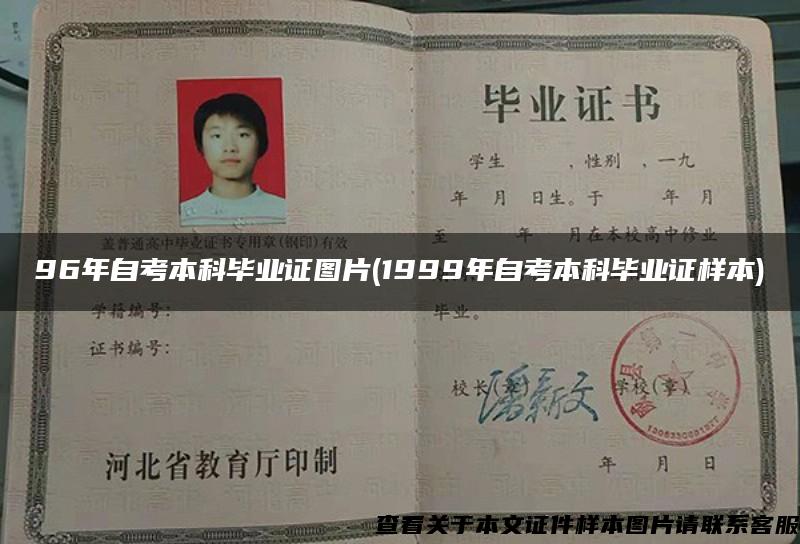 毕业证书
学生 ,性别 ,一九
年 月 日生。于 年 月
至 年 月在本校高中修业
盖普通高中毕业证书专用章(钢印)有效
96年自考本科毕业证图片(1999年自考本科毕业证样本)
毕业。
学籍编号:
证书编号:
校长(章) 学校(章)
潘新文
河北省教育厅印制
年 月 日
查看关于本文证件样本图片请联系客服